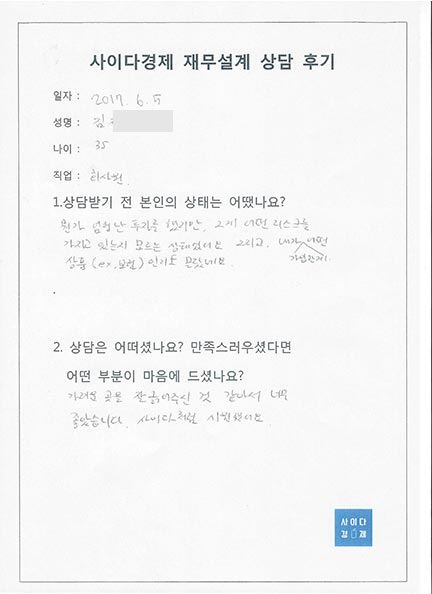 사이다경제 재무설계 상담 후기
일자 : 2017. 6. 5
성명 : 김
나이 : 35
직업 : 회사원
1.상담받기 전 본인의 상태는 어땠나요?
뭔가 엄청난 투자를 했지만, 그게 어떤 리스크를
가지고 있는지 모르는 상태였어요 그리고, 내가 어떤
상품 (ex.보험) 인지도 몰랐네요.
가입한지
2. 상담은 어떠셨나요? 만족스러우셨다면
어떤 부분이 마음에 드셨나요?
가려운 곳을 잘 긁어주신 것 같아서 너무
좋았습니다. 사이다처럼 시원했어요
사이다
경제